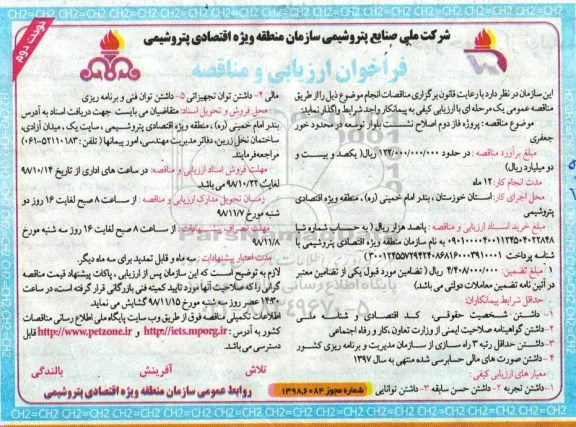 شرکت ملی صنایع پتروشیمی سازمان منطقه ویژه اقتصادی پتروشیمی
نوبت دوم
فراخوان ارزیابی و مناقصه
این سازمان در نظر دارد با رعایت قانون برگزاری مناقصات انجام موضوع ذیل را از طریق
مناقصه عمومی یک مرحله ای با ارزیابی کیفی به پیمانکار واجد شرایط واگذار نماید.
موضوع مناقصه: پروژه فاز دوم اصلاح تشست بلوار توسعه در محدود خور
جعفری
مبلغ برآورد مناقصه: در حدود ۱۲۲/۰۰۰/۰۰۰/۰۰۰ ریال( یکصد و بیست و
دو میلیارد ریال)
مدت انجام کار: ۱۲ ماه
محل اجرای کار: استان خوزستان، بندر امام خمینی (ره)، منطقه ویژه اقتصادی
پتروشیمی
مبلغ خرید اسناد ارزیابی و مناقصه: پانصد هزار ریال ( به حساب شماره شبا
به نام سازمان منطقه ویژه اقتصادی پتروشیمی با
شناسه پرداخت
مبلغ تضمین: ۴/۴۰۸/۰۰۰/۰۰۰ ریال ( تضامین مورد قبول یکی از تضامین معتبر
در آئین نامه تضمین معاملات دولتی می باشد)
حداقل شرایط پیمانکاران:
۱- داشتن شخصیت حقوقی، کد اقتصادی و شناسه ملی
۲- داشتن گواهینامه صلاحیت ایمنی از وزارت تعاون ،کار و رفاه اجتماعی
۳- داشتن حداقل رتبه ۳ راه سازی از سازمان مدیریت و برنامه ریزی کشور
۴- داشتن صورت های مالی حسابرسی شده منتهی به سال ۱۳۹۷
معیار های ارزیابی کیفی:
۱- داشتن تجربه ۲- داشتن حسن سابقه ۳- داشتن توانایی
مالی ۴- داشتن توان تجهیزاتی ۵- داشتن توان فنی و برنامه ریزی
محل فروش و تحویل اسناد: متقاضیان می بایست جهت دریافت اسناد به آدرس
بندر امام خمینی (ره)، منطقه ویژه اقتصادی پتروشیمی، سایت یک، میدان آزادی،
ساختمان نخل زرین، دفاتر مدیریت مهندسی، امور پیمانها ( تلفن: ۰۶۱-۵۲۱۱۰۱۸۳)
مراجعه فرمایند
مهلت فروش اسناد ارزیابی و مناقصه: در ساعت های اداری از تاریخ ۹۸/۱۰/۱۴
لغایت ۹۸/۱۰/۲۲ می باشد.
زمان تحویل مدارک ارزیابی و مناقصه: از ساعت ۸ صبح لغایت ۱۶ روز دو
شنبه مورخ ۹۸/۱۱/۷
مهلت انصراف پیشنهادات: از ساعت ۸ صبح لغایت ۱۶ روز سه شنبه مورخ
۹۸/۱۱/۸
مدت اعتبار پیشنهادات: سه ماه و قابل تمدید برای سه ماه دیگر.
لازم به توضیح است که این سازمان پس از ارزیابی، پاکات پیشنهاد قیمت مناقصه
گرانی را که صلاحیت آنها مورد تایید کمیته فنی بازرگانی قرار گرفته است، در ساعت
۱۴:۳۰ عصر روز سه شنبه مورخ ۹۸/۱۱/۱۵ گشایش می نماید.
اطلاعات تکمیلی مناقصه فوق از طریق وب سایت پایگاه ملی اطلاع رسانی مناقصات
کشور به آدرس: http://iets.mporg.ir و http://www.petzone.ir قابل
دسترسی می باشد.
تلاش آفرینش بالندگی
روابط عمومی سازمان منطقه ویژه اقتصادی پتروشیمی
شماره مجوز ۱۳۹۸٫۶۰۸۴